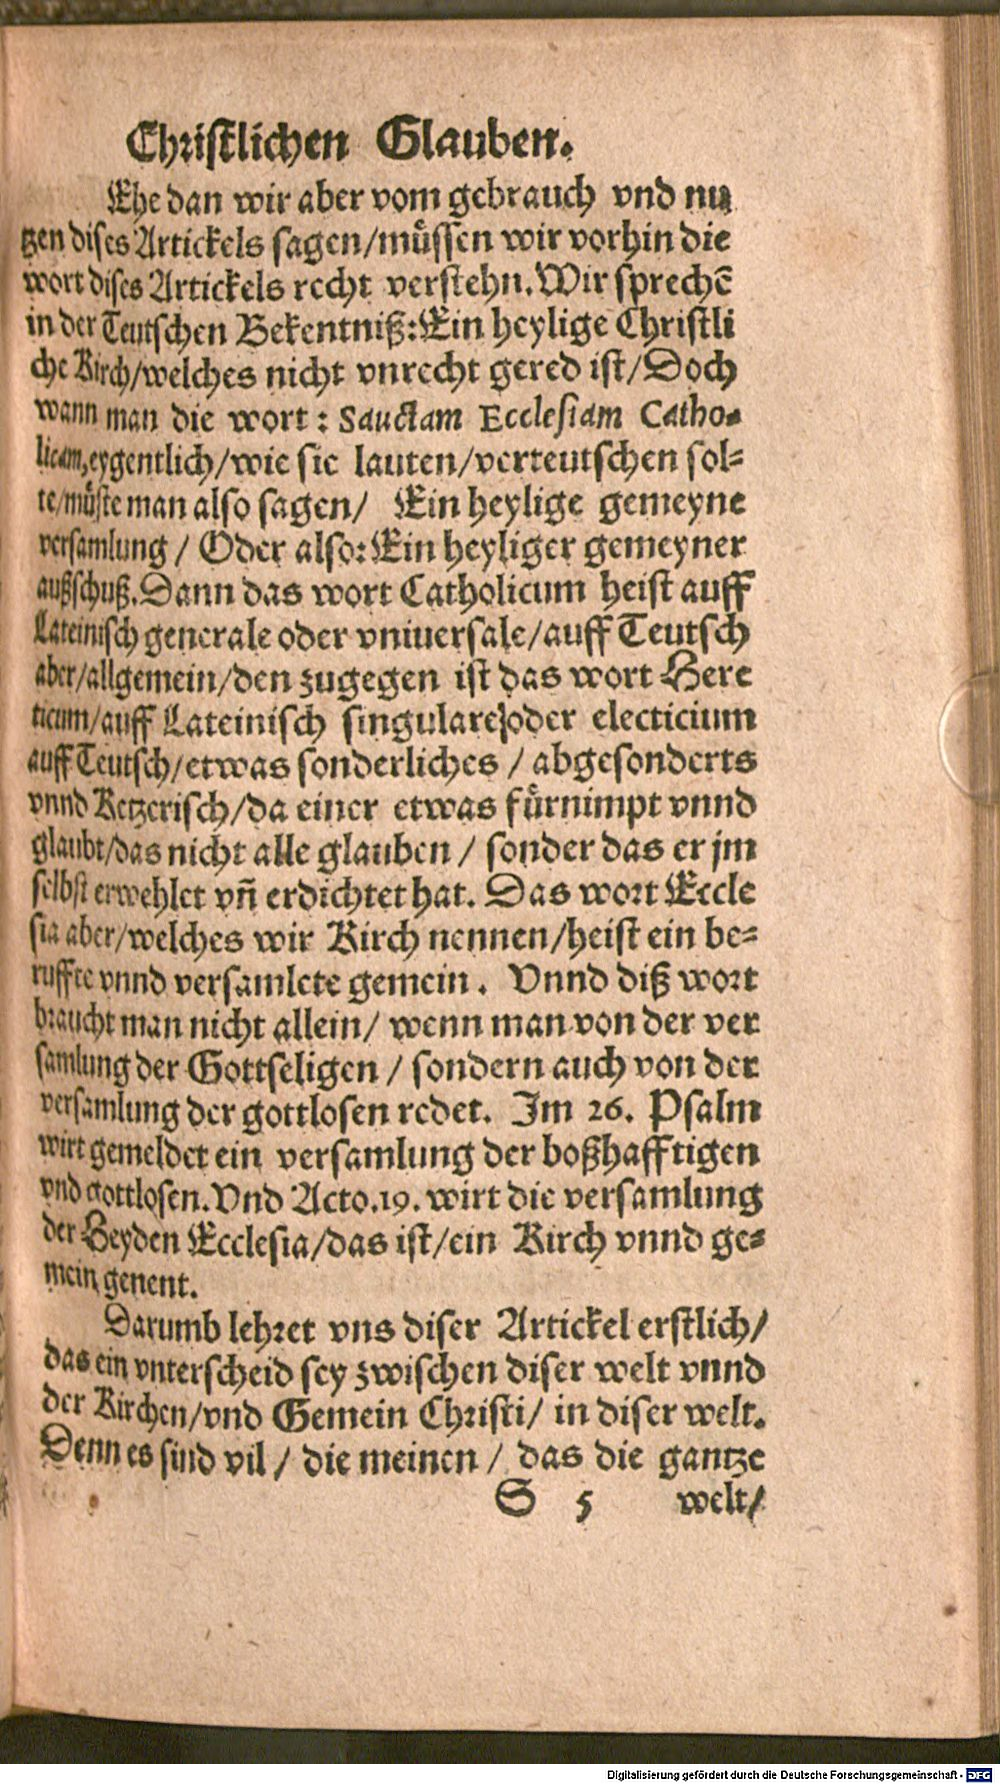 Christlichen Glauben.
Ehe dan wir aber vom gebrauch vnd nu
tzen dises Artickels sagen/müssen wir vorhin die
wort dises Artickels recht verstehn. Wir sprechē
in der Teutschen Bekentniß: Ein heylige Christli
che Kirch/welches nicht vnrecht gered ist/Doch
wann man die wort: Sauctam Ecclesiam Catho-
licam, eygentlich/wie sie lauten/verteutschen sol-
te/müste man also sagen/ Ein heylige gemeyne
versamlung / Oder also: Ein heyliger gemeyner
außschuß. Dann das wort Catholicum heist auff
Lateinisch generale oder vniuersale/auff Teutsch
aber/allgemein/den zugegen ist das wort Here
ticum/auff Lateinisch singulare/oder electicium
auff Teutsch/etwas sonderliches / abgesonderts
vnnd Ketzerisch/da einer etwas fürnimpt vnnd
glaubt/das nicht alle glauben / sonder das er jm
selbst erwehlet vñ erdichtet hat. Das wort Eccle
sia aber/welches wir Kirch nennen/heist ein be-
ruffte vnnd versamlete gemein. Vnnd diß wort
braucht man nicht allein/ wenn man von der ver
samlung der Gottseligen / sondern auch von der
versamlung der gottlosen redet. Im 26. Psalm
wirt gemeldet ein versamlung der boßhafftigen
vnd gottlosen. Vnd Acto.19. wirt die versamlung
der Heyden Ecclesia/das ist/ein Kirch vnnd ge-
mein genent.
Darumb lehret vns diser Artickel erstlich/
das ein vnterscheid sey zwischen diser welt vnnd
der Kirchen/vnd Gemein Christi/ in diser welt.
Denn es sind vil / die meinen / das die gantze
S 5 welt/
Digitalisierung gefördert durch die Deutsche Forschungsgemeinschaft - DFG